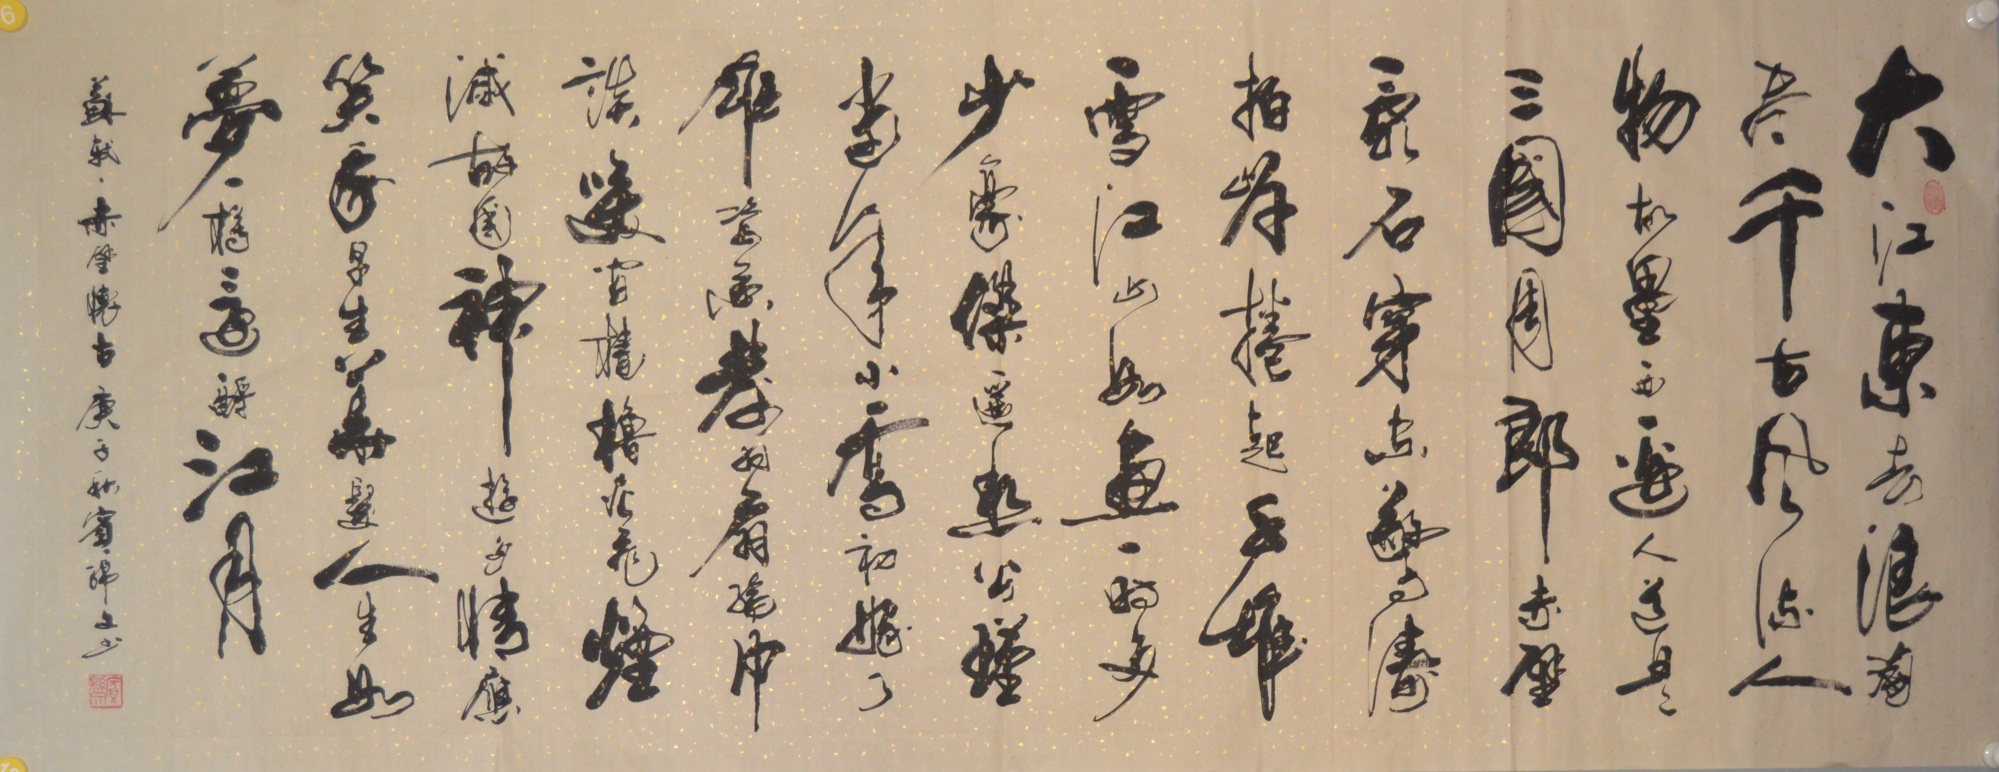 大江東去浪淘
盡千古风流人
物故壘西邊人道是
三國周郎赤壁
亂石穿空驚濤
拍岸捲起千堆
雪江山如畫一時多
少豪傑遙想公瑾
當年小喬初嫁了
雄姿英發羽扇綸巾
談笑間檣櫓灰飛煙
滅故國神遊多情應
笑我早生華髮人生如
夢一樽還酹江月
蘇軾赤壁懷古庚子秋賓